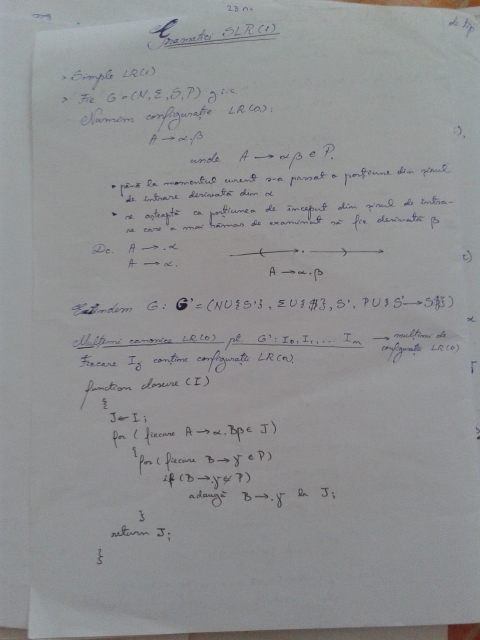 28 no
Gramatici SLR(1)
> Simple LR(1)
> Fie G=(N,Σ,S,P) g.i.c.
Numim configurație LR(0):
A → α.β
unde A → αβ ∈ P.
• până la momentul curent s-a parsat o porțiune din șirul
de intrare derivată din α
• se așteaptă ca porțiunea de început din șirul de intra-
re care a mai rămas de examinat să fie derivată β
De. A → .α
A → α.
A → α.β
Extindem G: G' = (N∪{S'}, Σ∪{$}, S', P∪{S'→S$})
Mulțimi canonice LR(0) pt. G': I0, I1, ... Im → mulțimi de
configurații LR(0)
Fiecare Ij conține configurații LR(0)
function closure (I)
{
J ← I;
for ( fiecare A → α.Bβ ∈ J)
{
for( fiecare B → γ ∈ P)
if (B → .γ ∉ J)
adaugă B → .γ la J;
}
return J;
}